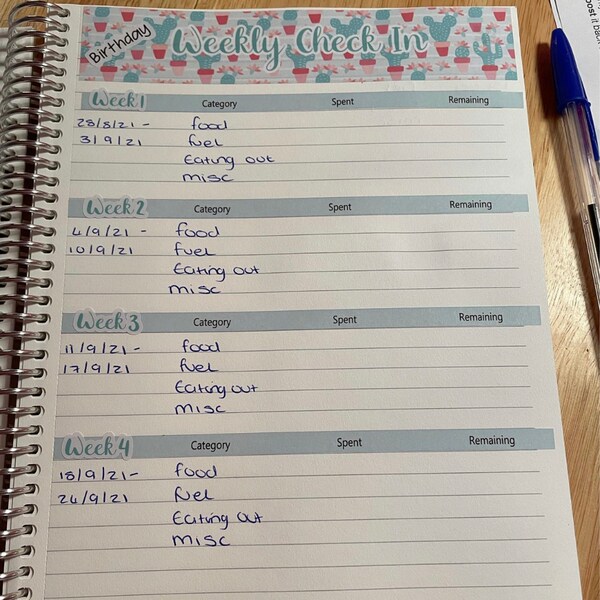 Birthday Weekly Check In
Week 1 Category Spent Remaining
28/8/21 - food
3/9/21 fuel
Eating out
misc
Week 2 Category Spent Remaining
4/9/21 - food
10/9/21 fuel
Eating out
misc
Week 3 Category Spent Remaining
11/9/21 - food
17/9/21 fuel
Eating out
misc
Week 4 Category Spent Remaining
18/9/21 - food
24/9/21 fuel
Eating out
misc
post it back